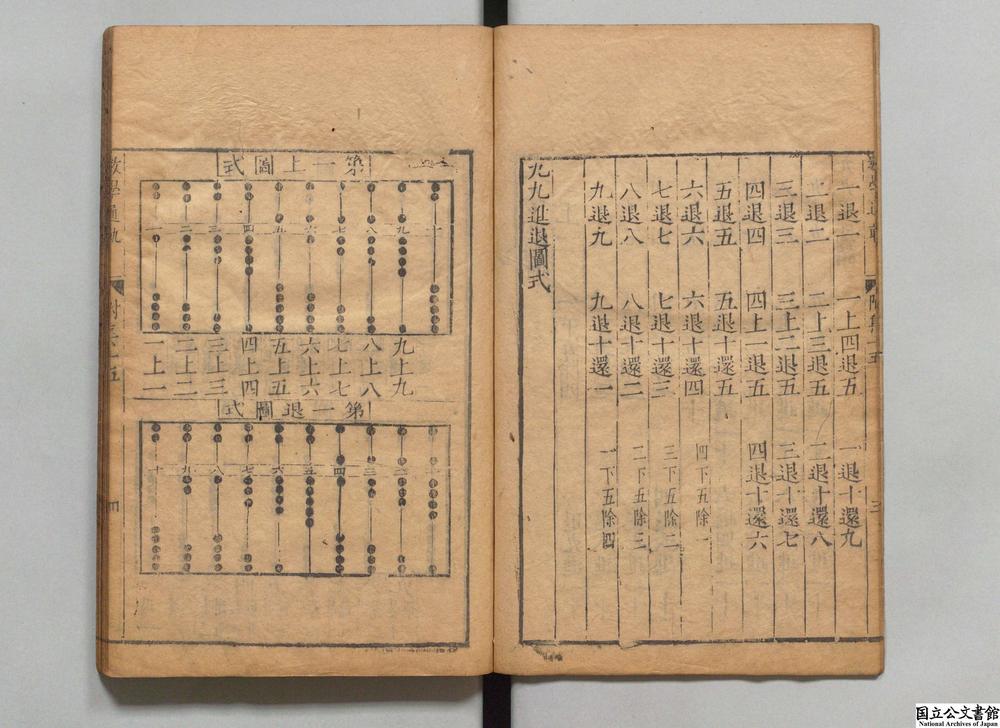 一退一　一上四退五　一退十還九
二退二　二上三退五　二退十還八
三退三　三上二退五　三退十還七
四退四　四上一退五　四退十還六
五退五　五退十還五
六退六　六退十還四　四下五除一
七退七　七退十還三　三下五除二
八退八　八退十還二　二下五除三
九退九　九退十還一　一下五除四
九九進退圖式
三
第一上圖式
十　九　八　七　六　五　四　三　二　一
九上九
八上八
七上七
六上六
五上五
四上四
三上三
二上二
一上一
第一退圖式
一　二　三　四　五　六　七　八　九　十
數學通軌
四
国立公文書館
National Archives of Japan